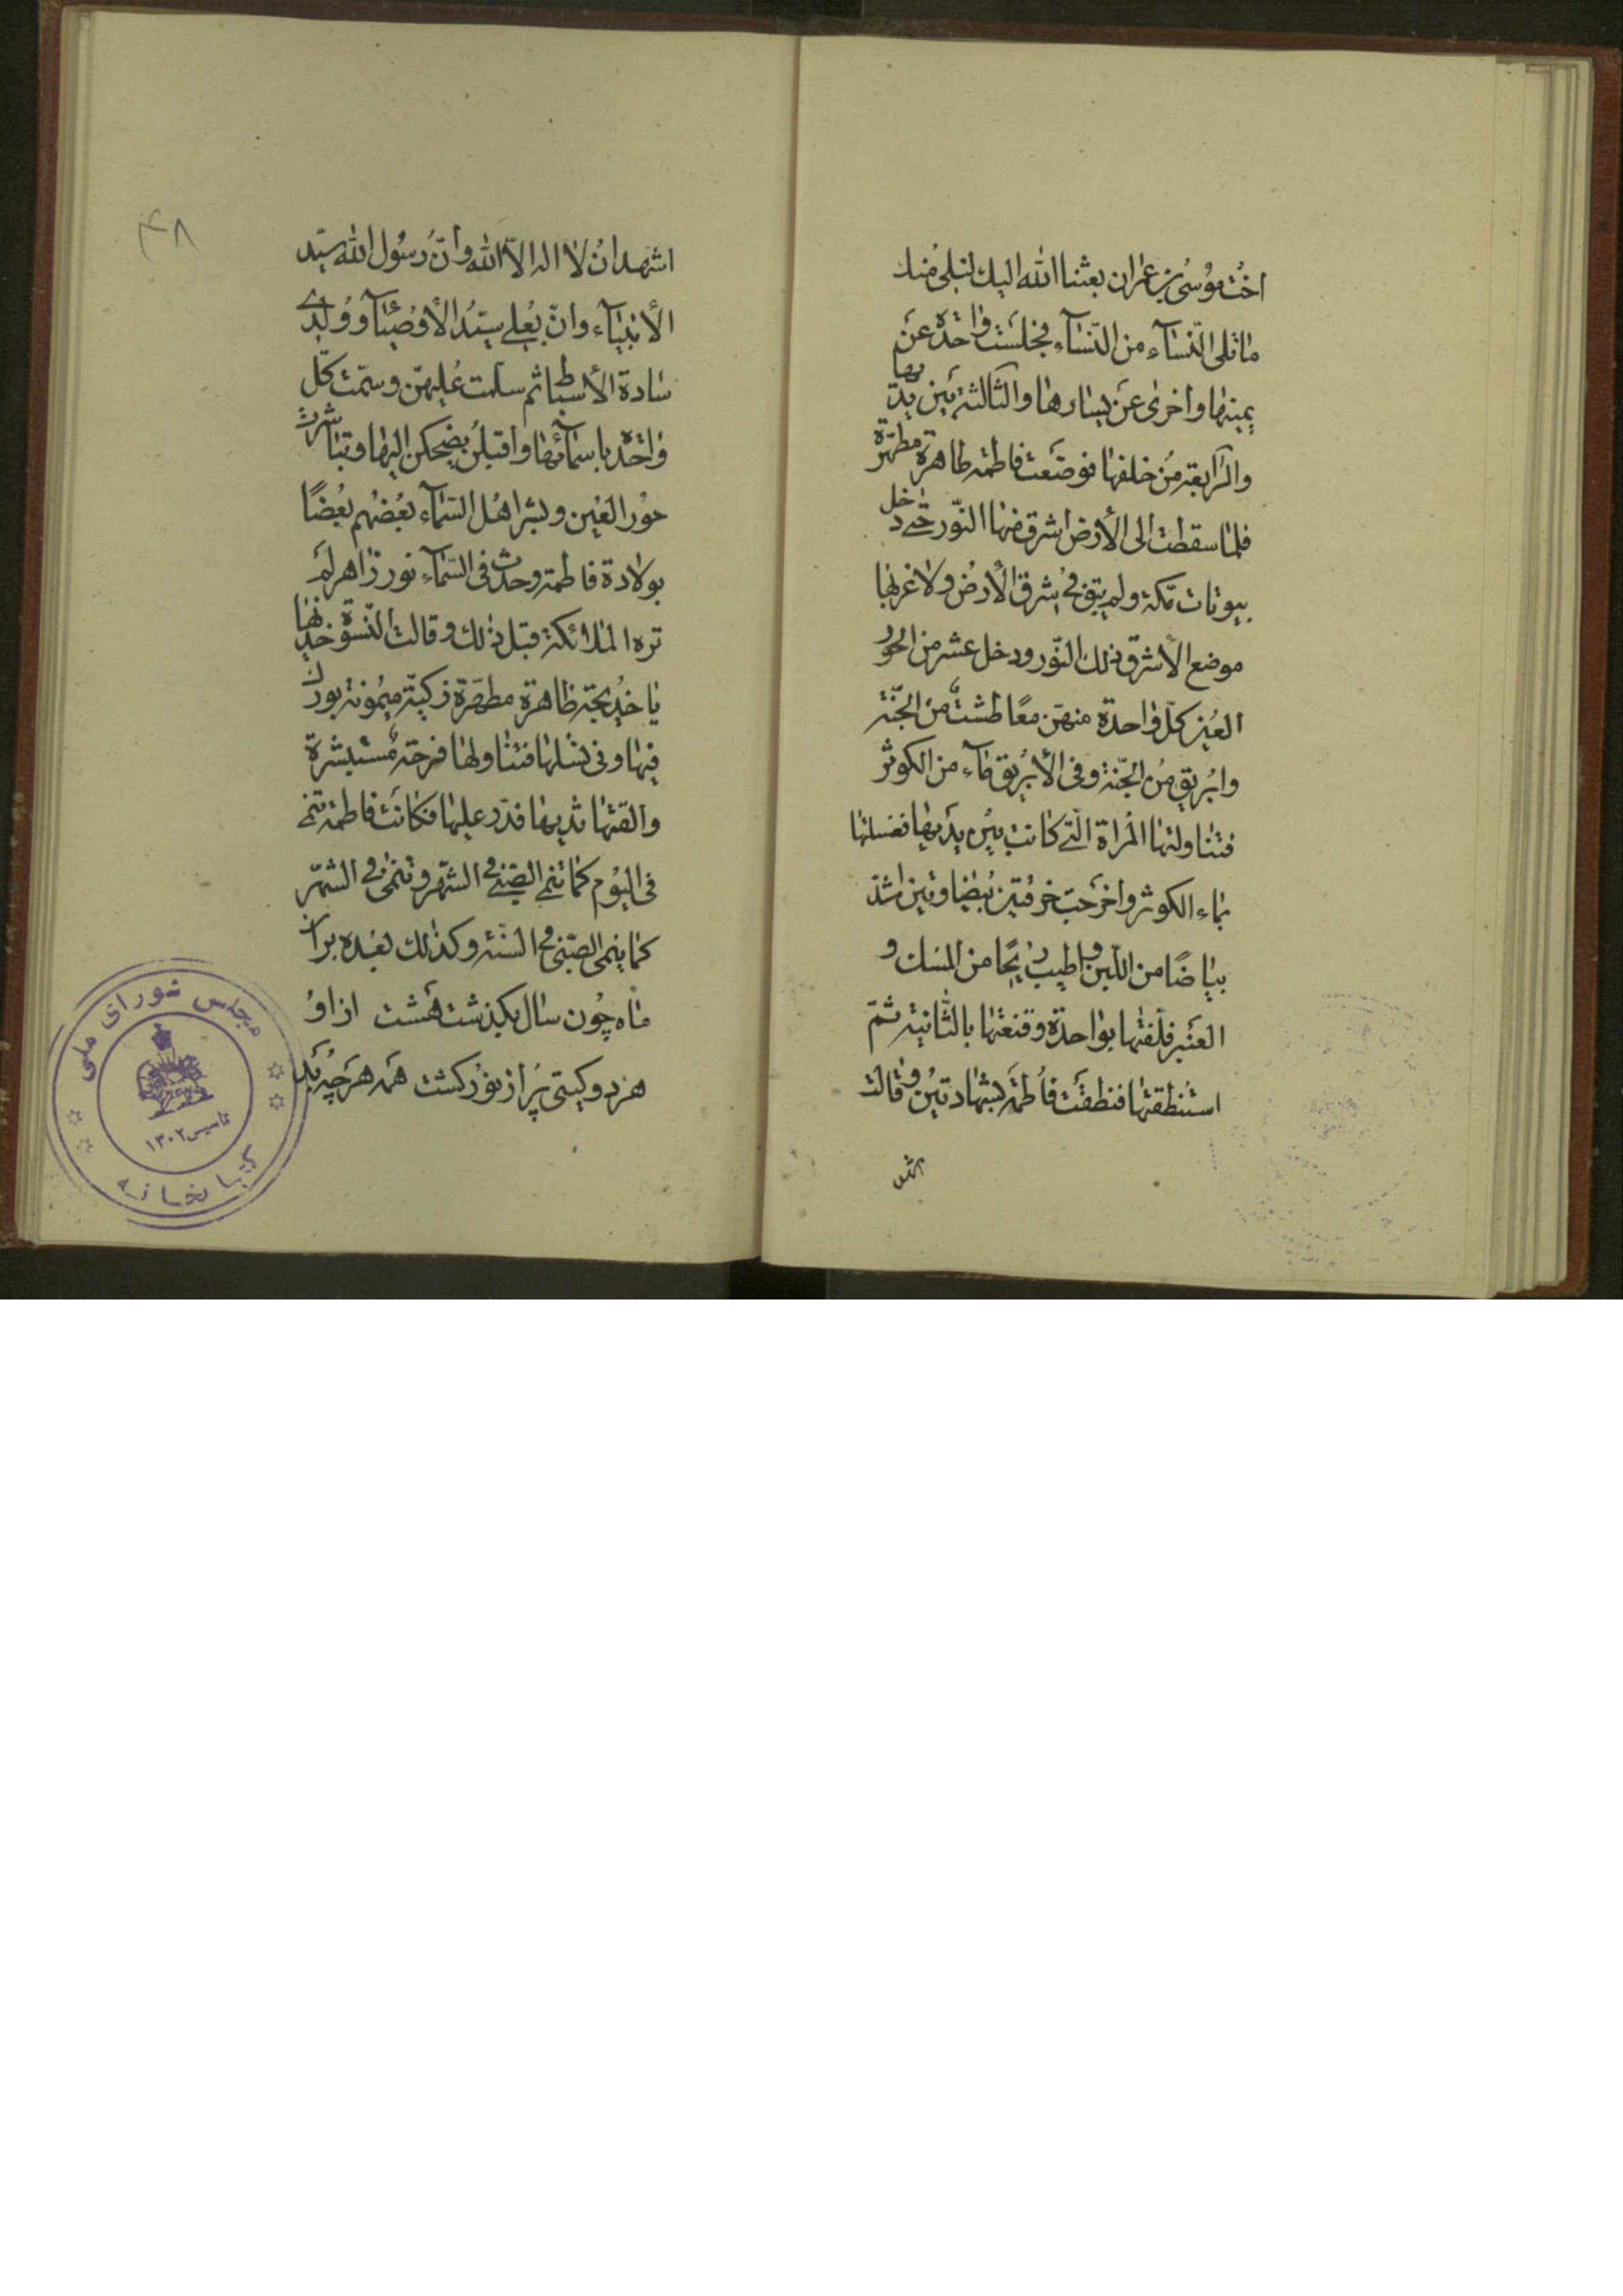 اخت موسی بن عمران بعثنا الله الیك لنلی منك
ما تلی النّساء من النّساء فجلست واحدة عن
یمینها و اخری عن یسارها والثالثة بین یدیها
والرّابعة من خلفها فوضعت فاطمة طاهرة مطهّرة
فلمّا سقطت الی الأرض اشرق منها النّور حتّی دخل
بیوتات مكّة ولم یبق فی شرق الأرض ولا غربها
موضع الّا شرق ذلك النّور ودخل عشر من الحور
العین كلّ واحدة منهنّ معها طشت من الجنّة
وابریق من الجنّة وفی الأبریق ماء من الكوثر
فتناولتها المرأة الّتی كانت بین یدیها فغسلتها
بماء الكوثر واخرجت خرقتین بیضاوتین اشدّ
بیاضًا من اللّبن واطیب ریحًا من المسك و
العنبر فلفّتها بواحدة وقنعتها بالثّانیة ثمّ
استنطقتها فنطقت فاطمة بشهادتین و قالت
اشهد
۴۸
اشهد ان لا اله الّا الله وانّ رسول الله سیّد
الأنبیاء وانّ بعلی سیّد الأوصیاء و ولدی
سادة الأسباط ثم سلّمت علیهنّ وسمّت كلّ
واحدة باسمائها واقبلن یضحكن الیها وتباشرت
حور العین وبشر اهل السّماء بعضهم بعضًا
بولادة فاطمة وحدث فی السّماء نور زاهر لم
تره الملائكة قبل ذلك وقالت النّسوة خذیها
یا خدیجة طاهرة مطهّرة زكیّة میمونة بورك
فیها وفی نسلها فتناولها فرحة مستبشرة
والقتها ثدیها فدرّ علیها فكانت فاطمة تنمی
فی الیوم كما تنمی الصّبی فی الشهر وتنمی فی الشهر
كما ینمی الصّبی فی السّنة وكذلك بعده بر آن
ماه چون سال بگذشت هشت از او
هر دو گیتی پر از نور گشت همه هر چه بد
مجلس شورای ملی
تاسیس ۱۳۰۲
كتابخانه